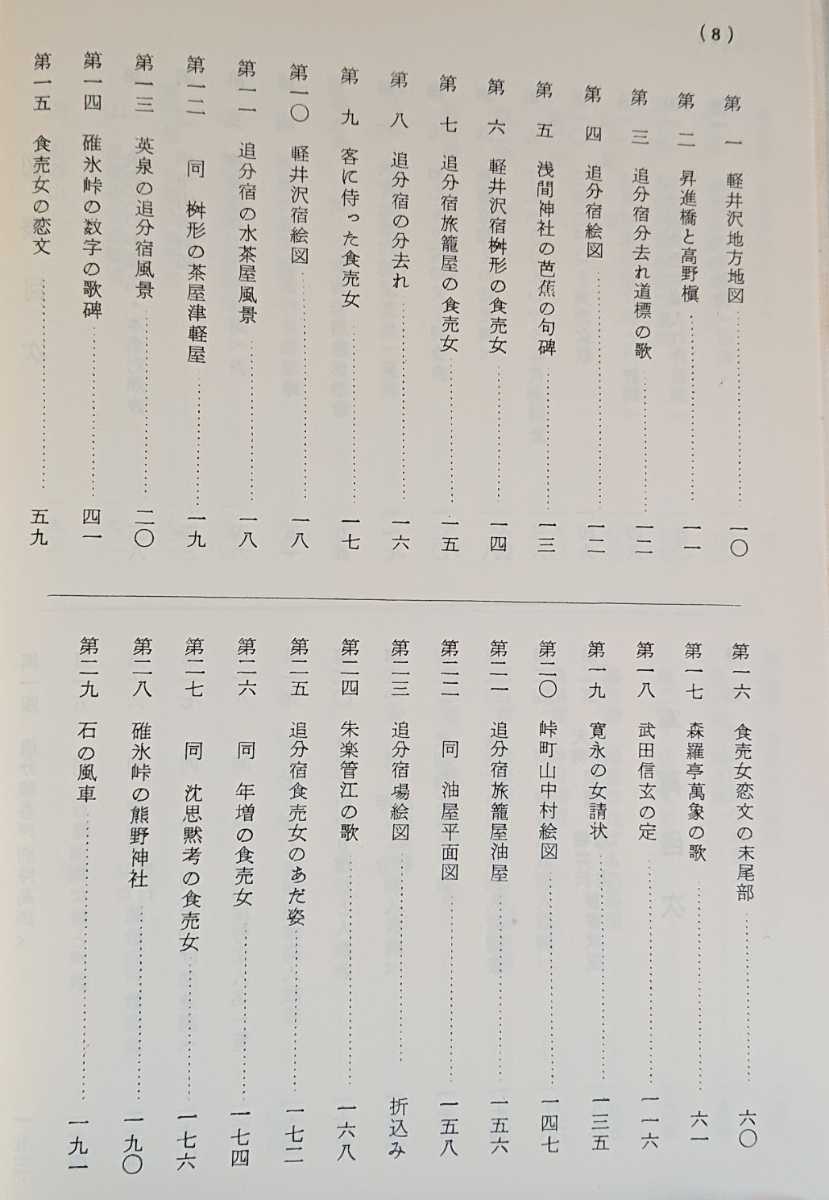 (8)
第一 軽井沢地方地図…………一〇
第二 昇進橋と高野槇…………一一
第三 追分宿分去れ道標の歌…………一二
第四 追分宿絵図…………一二
第五 浅間神社の芭蕉の句碑…………一三
第六 軽井沢宿桝形の食売女…………一四
第七 追分宿旅籠屋の食売女…………一五
第八 追分宿の分去れ…………一六
第九 客に侍った食売女…………一七
第一〇 軽井沢宿絵図…………一八
第一一 追分宿の水茶屋風景…………一八
第一二 同 桝形の茶屋津軽屋…………一九
第一三 英泉の追分宿風景…………二〇
第一四 碓氷峠の数字の歌碑…………四一
第一五 食売女の恋文…………五九
第一六 食売女恋文の末尾部…………六〇
第一七 森羅亭萬象の歌…………六一
第一八 武田信玄の定…………一一六
第一九 寛永の女請状…………一三五
第二〇 峠町山中村絵図…………一四七
第二一 追分宿旅籠屋油屋…………一五六
第二二 同 油屋平面図…………一五八
第二三 追分宿場絵図…………折込み
第二四 朱楽管江の歌…………一六八
第二五 追分宿食売女のあだ姿…………一七二
第二六 同 年増の食売女…………一七四
第二七 同 沈思黙考の食売女…………一七六
第二八 碓氷峠の熊野神社…………一九〇
第二九 石の風車…………一九一